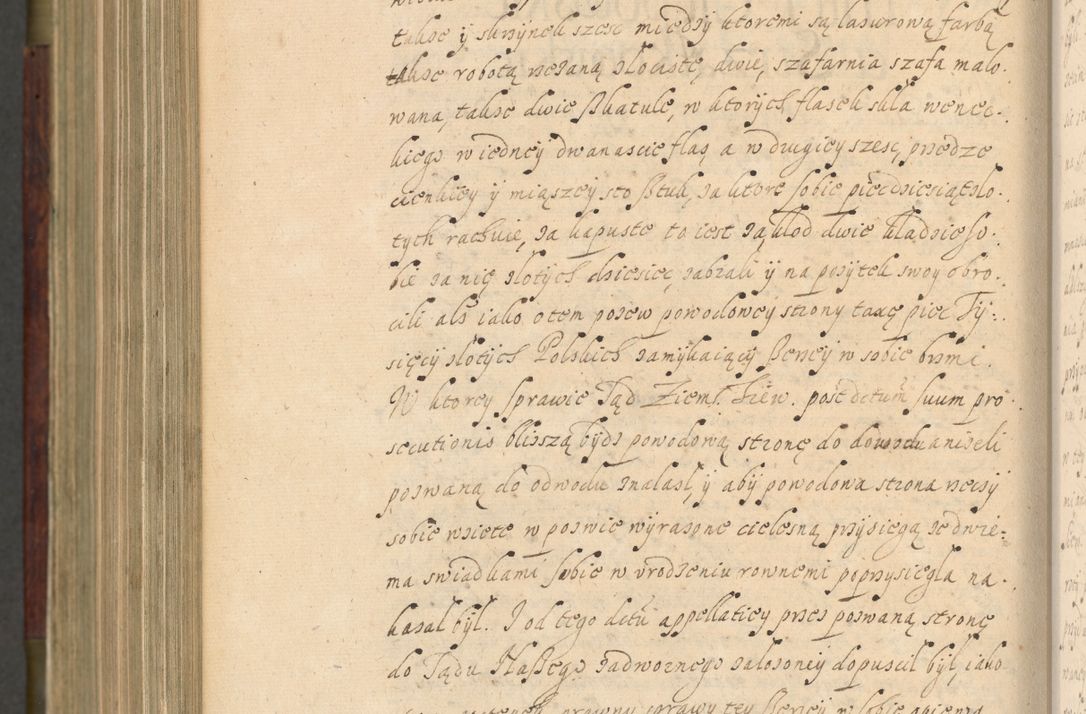 także y skrzynek szesc między ktoremi są lazurową farbą
takze robotą rzezaną złociste, dwie, szafarnia szafa malo-
wana, takze dwie szkatule, w ktorych flaszek skła wenec-
kiego w iedney dwanascie flasz, a w drugiey szesc, przedze
cienkiey y miąszey sto sztuk, za ktore sobie pięcdziesiąt zło-
tych rachuie, za kapuste to iest za kłod dwie kładzie so-
bie za nię złotych dziesięc, zabrali y na pozytek swoy obro-
cili als iako o tem pozew powodowey strony taxę pięc Ty-
sięcy złotych Polskich zamykaiący szerzey w sobie brzmi.
W ktorey sprawie Sąd Ziems. Kiew. post ditum suum pro
secutionis bliszszą bydz powodową stronę do dowodu anizeli
pozwaną do odwodu znalasł, y aby powodowa strona rzeczy
sobie wziete w pozwie wyrazone cielesną przysięgą ze dwie-
ma swiadkami sobie w urodzeniu rownemi poprzysięgla na-
kazał był. I od tego ditu appellatiey przez pozwaną stronę
do Sądu Naszego zadwornego załozoney dopuscil był, iako
prawny sprawy tey szerzey w sobie